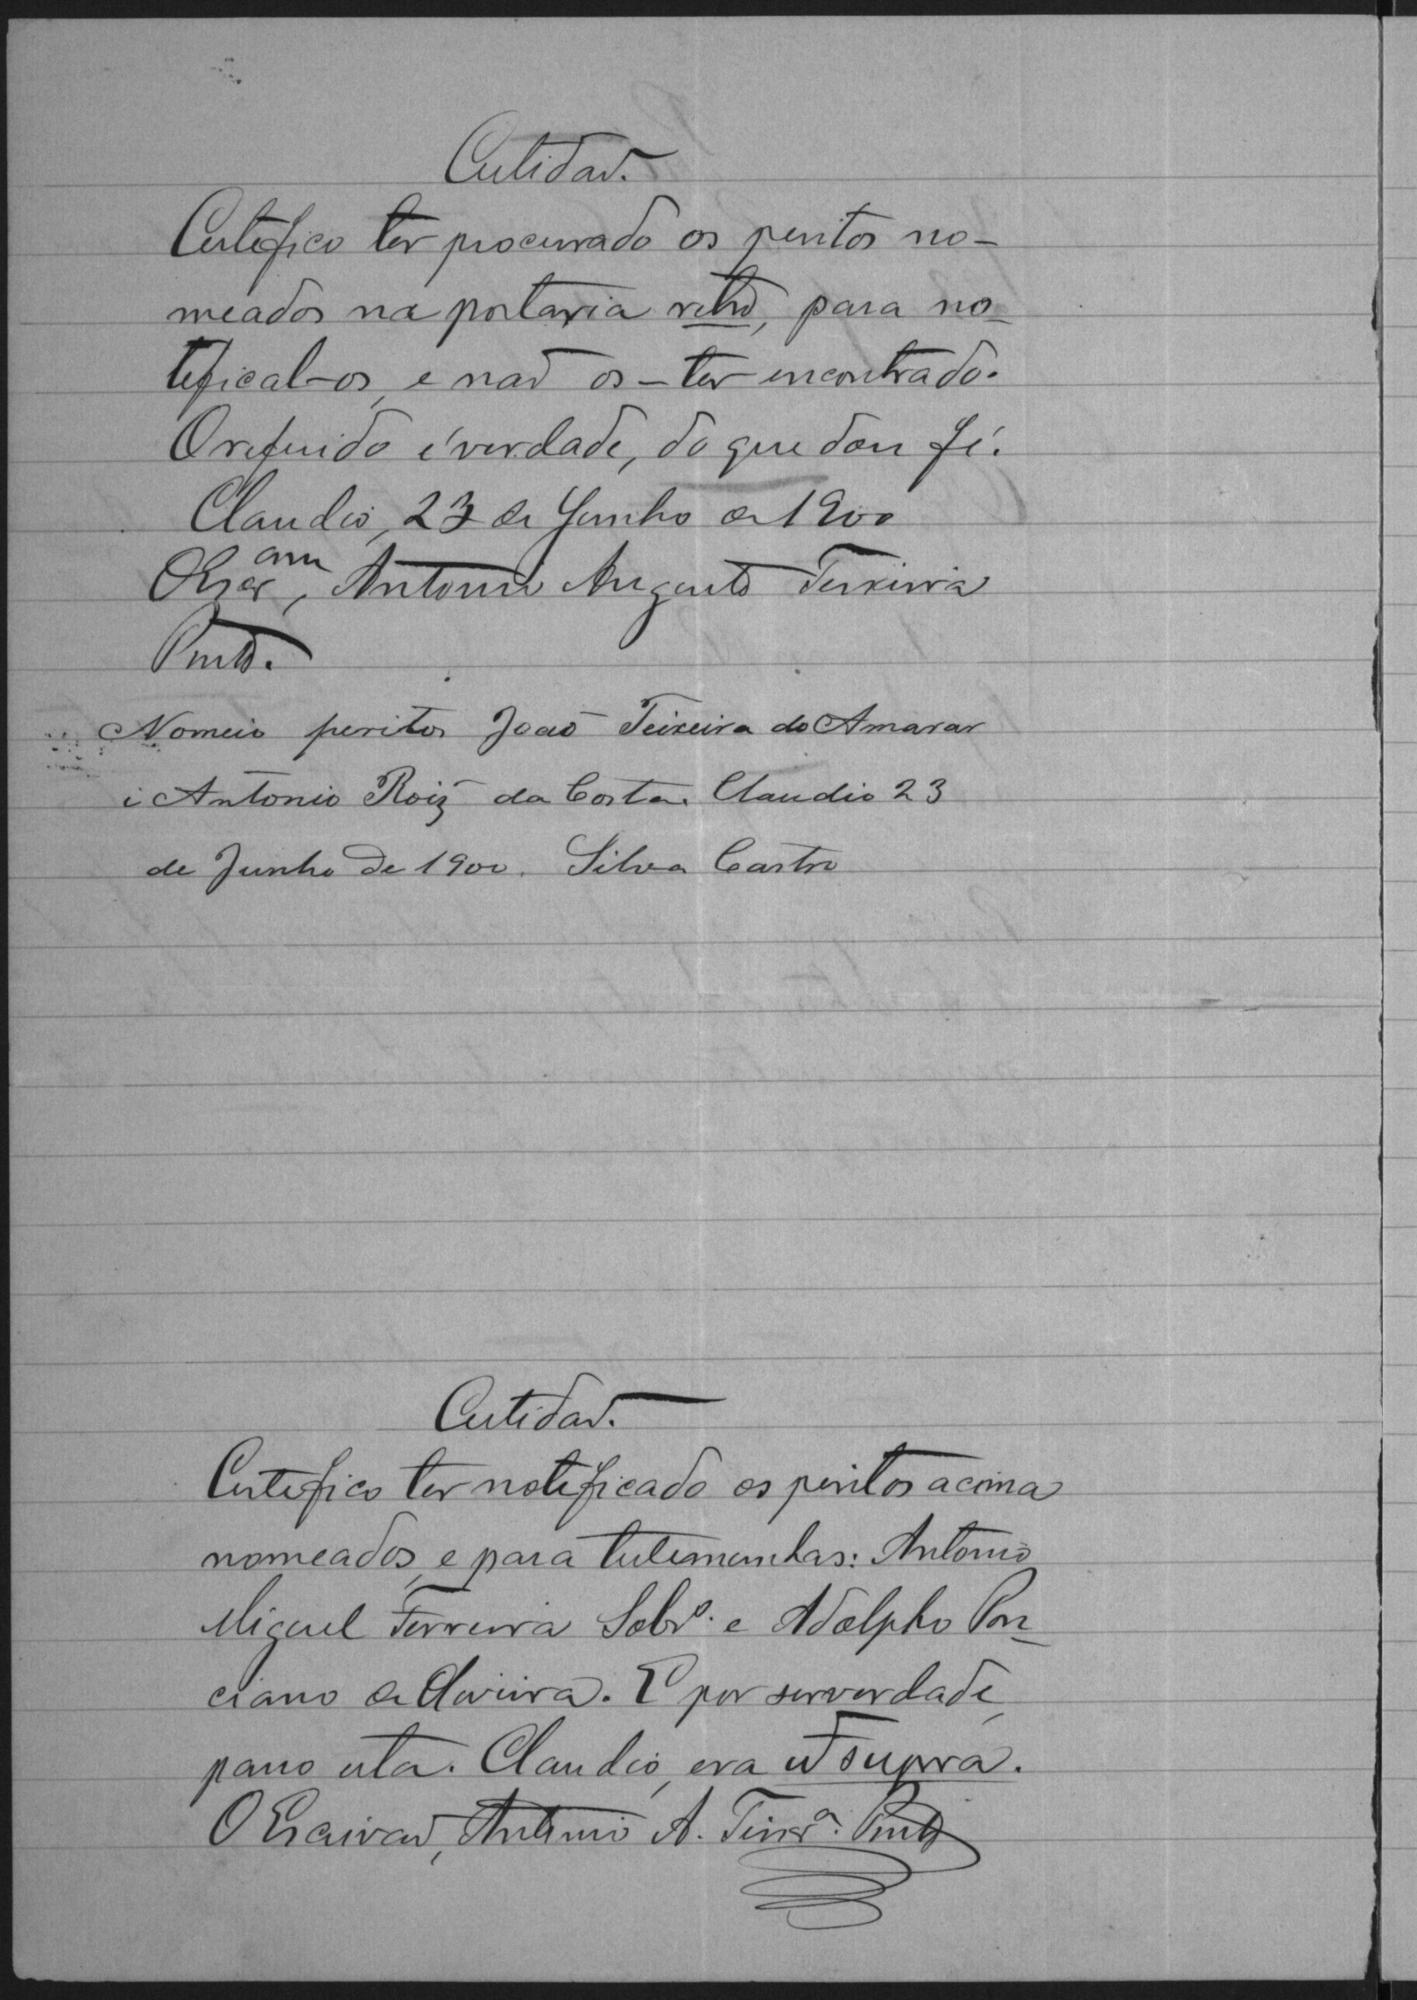 Certidaõ.
Certefico ter procurado os peritos no-
meados na portaria retro, para no-
tefical-os, e naõ os-ter encontrado.
O referido é verdade, do que dou fé.
Claudio, 23 de Junho de 1900
O Escr.am, Antonio Augusto Teixeira
Pinto.
Nomeio peritos Joaõ Teixeira do Amarar
i Antonio Roiz da Costa. Claudio 23
de Junho de 1900. Silva Castro
Certidaõ.
Certefico ter noteficado os peritos acima
nomeados, e para testemunhas: Antonio
Miguel Ferreira Sobr.o e Adolpho Pon-
ciano de Oliveira. E por ser verdade,
passo esta. Claudio, era ut supra.
O Escrivaõ, Antonio A. Teixr.a Pinto